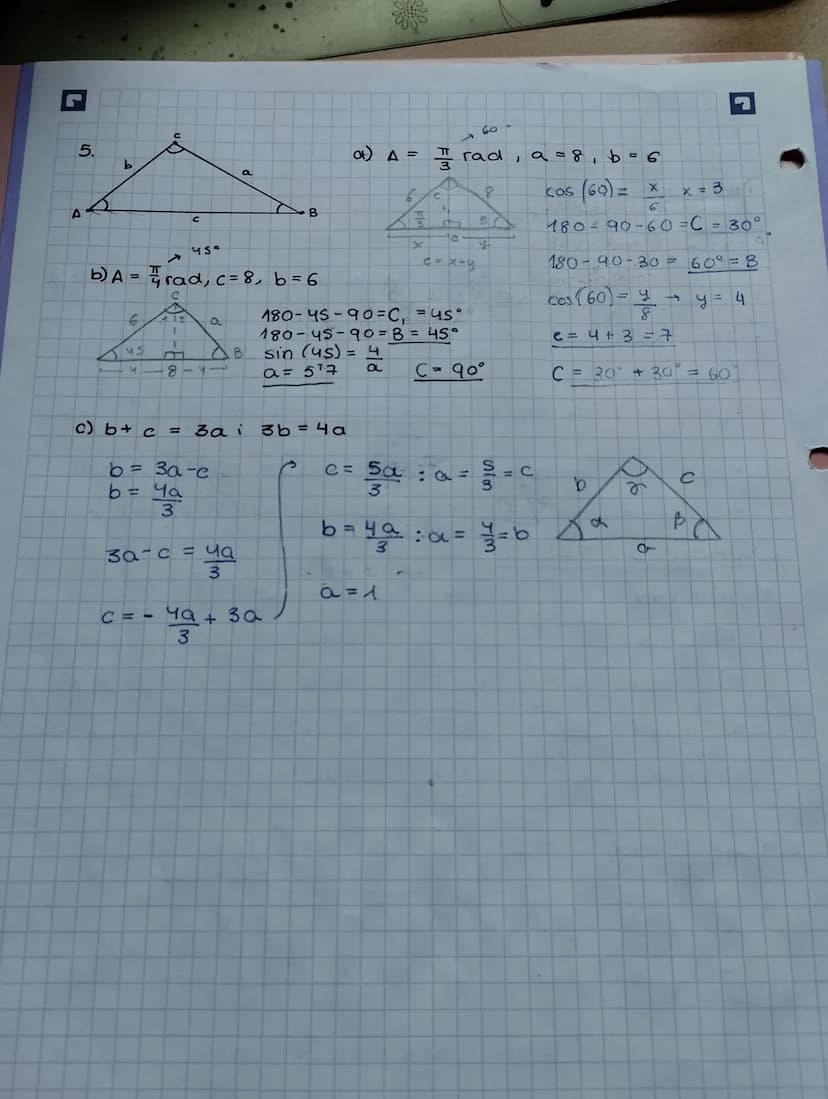 5.
C
b
a
A
c
B
60°
a) A = π/3 rad, a = 8, b = 6
6
C
8
π/3
B
x
c
y
c = x+y
cos (60) = x/6 x = 3
180 - 90 - 60 = C = 30°
180 - 90 - 30 = 60° = B
cos(60) = y/8 → y = 4
c = 4 + 3 = 7
C = 30° + 30° = 60°
45°
b) A = π/4 rad, c = 8, b = 6
C
6
1
2
a
45
B
4 - 8 - 4
180 - 45 - 90 = C₁ = 45°
180 - 45 - 90 = B = 45°
sin (45) = 4/a
a = 5'7 C = 90°
c) b + c = 3a i 3b = 4a
b = 3a - c
b = 4a/3
3a - c = 4a/3
c = - 4a/3 + 3a
c = 5a/3 : a = 5/3 = c
b = 4a/3 : a = 4/3 = b
a = 1
b
γ
c
α
β
a